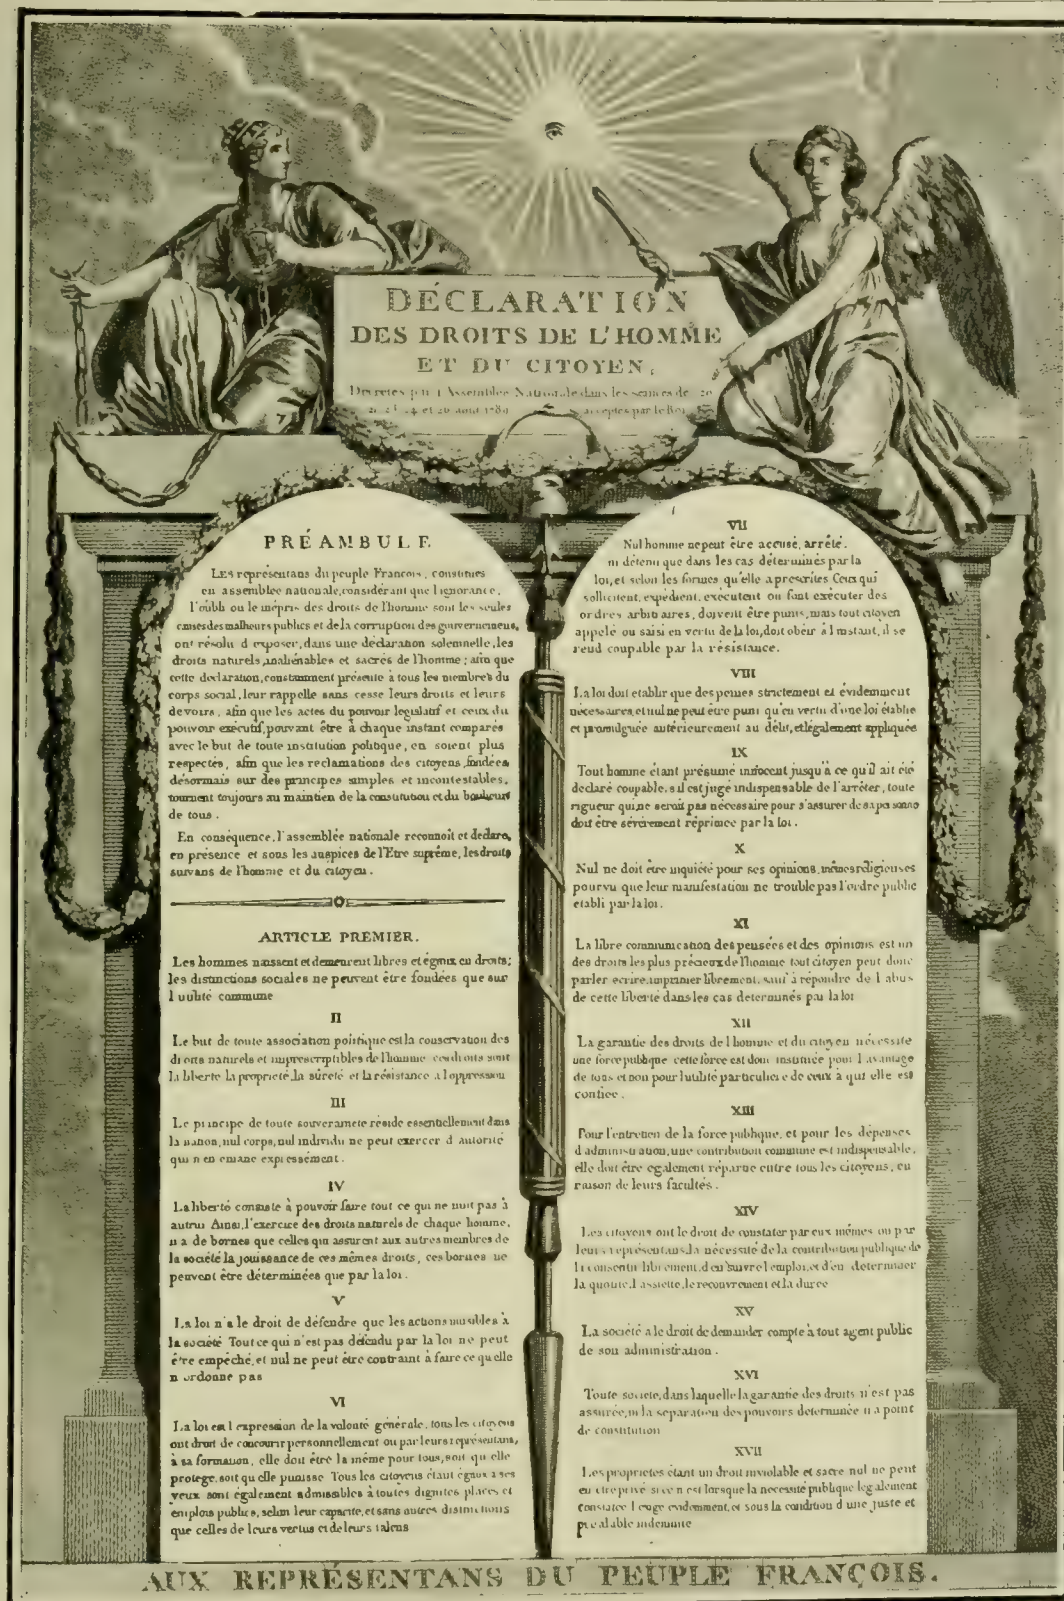 DÉCLARATION
DES DROITS DE L'HOMME
ET DU CITOYEN,
Décretés par l'Assemblée Nationale dans les séances de 20
21, 23, 24 et 26 août 1789 acceptés par le Roi
PRÉAMBULE
LES représentans du peuple Francois, constitués
en assemblée nationale, considérant que l'ignorance,
l'oubli ou le mépris des droits de l'homme sont les seules
causes des malheurs publics et de la corruption des gouvernemens,
ont résolu d'exposer, dans une déclaration solemnelle, les
droits naturels, inaliénables et sacrés de l'homme; afin que
cette déclaration, constamment présente à tous les membres du
corps social, leur rappelle sans cesse leurs droits et leurs
devoirs, afin que les actes du pouvoir legislatif et ceux du
pouvoir exécutif, pouvant être à chaque instant comparés
avec le but de toute institution politique, en soient plus
respectés, afin que les reclamations des citoyens, fondées
désormais sur des principes simples et incontestables,
tournent toujours au maintien de la constitution et du bonheur
de tous.
En conséquence, l'assemblée nationale reconnoit et declare,
en présence et sous les auspices de l'Etre suprême, les droits
suivans de l'homme et du citoyen.
ARTICLE PREMIER.
Les hommes naissent et demeurent libres et égaux en droits;
les distinctions sociales ne peuvent être fondées que sur
l'utilité commune
II
Le but de toute association politique est la conservation des
droits naturels et imprescriptibles de l'homme ces droits sont
la liberté la proprieté, la sûreté et la résistance a l'oppression
III
Le principe de toute souveraineté réside essentiellement dans
la nation, nul corps, nul individu ne peut exercer d'autorité
qui n'en emane expressément.
IV
La liberté consiste à pouvoir faire tout ce qui ne nuit pas à
autrui Ainsi, l'exercice des droits naturels de chaque homme,
n'a de bornes que celles qui assurent aux autres membres de
la société la jouissance de ces mêmes droits, ces bornes ne
peuvent être déterminées que par la loi.
V
La loi n'a le droit de défendre que les actions nuisibles à
la société Tout ce qui n'est pas défendu par la loi ne peut
être empêché, et nul ne peut être contraint à faire ce qu'elle
n'ordonne pas
VI
La loi est l'expression de la volonté générale, tous les citoyens
ont droit de concourir personnellement ou par leurs représentans,
à sa formation, elle doit être la même pour tous, soit qu'elle
protege, soit qu'elle punisse Tous les citoyens étant égaux a ses
yeux sont également admissibles à toutes dignités places et
emplois publics, selon leur capacité, et sans autres distinctions
que celles de leurs vertus et de leurs talens
VII
Nul homme ne peut être accusé, arrêté,
ni détenu que dans les cas déterminés par la
loi, et selon les formes qu'elle a prescrites Ceux qui
sollicitent, expédient, exécutent ou font exécuter des
ordres arbitraires, doivent être punis, mais tout citoyen
appelé ou saisi en vertu de la loi, doit obéir à l'instant, il se
rend coupable par la résistance.
VIII
La loi doit etablir que des peines strictement et évidemment
nécessaires, et nul ne peut être puni qu'en vertu d'une loi établie
et promulguée antérieurement au délit, et légalement appliquée
IX
Tout homme étant présumé innocent jusqu'à ce qu'il ait été
declaré coupable, s'il est jugé indispensable de l'arrêter, toute
rigueur qui ne seroit pas nécessaire pour s'assurer de sa personne
doit être sévèrement réprimée par la loi.
X
Nul ne doit être inquiété pour ses opinions, mêmes religieuses
pourvu que leur manifestation ne trouble pas l'ordre public
etabli par la loi.
XI
La libre communication des pensées et des opinions est un
des droits les plus précieux de l'homme tout citoyen peut donc
parler ecrire, imprimer librement, sauf à répondre de l'abus
de cette liberté dans les cas determinés par la loi
XII
La garantie des droits de l'homme et du citoyen nécessite
une force publique cette force est donc instituée pour l'avantage
de tous et non pour l'utilité particuliere de ceux à qui elle est
confiée.
XIII
Pour l'entretien de la force publique, et pour les dépenses
d'administration, une contribution commune est indispensable,
elle doit être egalement répartie entre tous les citoyens, en
raison de leurs facultés.
XIV
Les citoyens ont le droit de constater par eux mêmes ou par
leurs représentans, la nécessité de la contribution publique de
la consentir librement, d'en suivre l'emploi, et d'en determiner
la quotité, l'assiette, le recouvrement et la durée
XV
La société a le droit de demander compte à tout agent public
de son administration.
XVI
Toute société, dans laquelle la garantie des droits n'est pas
assurée, ni la séparation des pouvoirs determinée n'a point
de constitution
XVII
Les propriétés étant un droit inviolable et sacré nul ne peut
en etre privé si ce n'est lorsque la necessité publique legalement
constatée l'exige evidemment, et sous la condition d'une juste et
préalable indemnité
AUX REPRÉSENTANS DU PEUPLE FRANÇOIS.